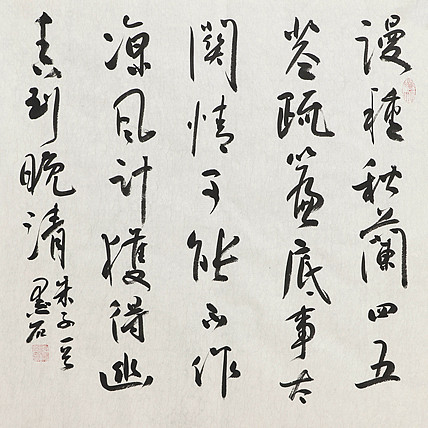 謾種秋蘭四五
莖疏簾底事太
關情可能不作
涼風計獲得幽
香到晚清
朱子
墨石